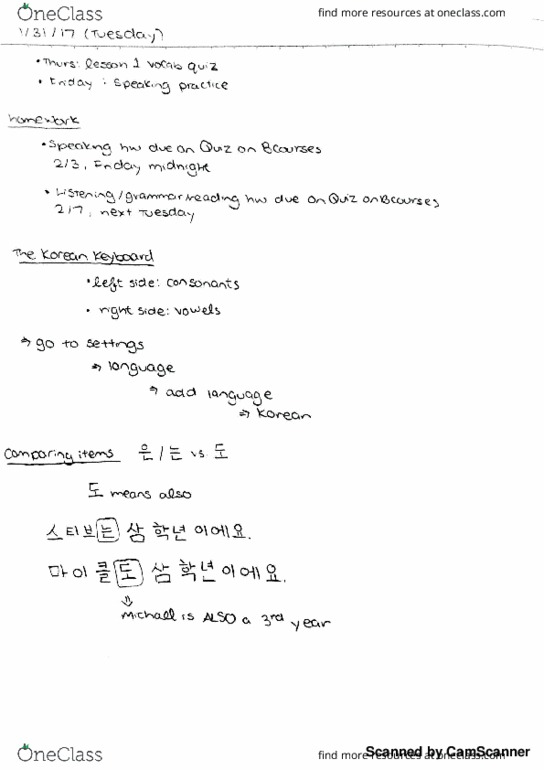 OneClass
find more resources at oneclass.com
1/31/17 (Tuesday)
• Thurs: lesson 1 vocab quiz
• Friday : Speaking practice
homework
• Speaking hw due on Quiz on Bcourses
2/3, Friday midnight
• Listening/grammar/reading hw due on Quiz on Bcourses
2/7, next Tuesday
The Korean Keyboard
• left side: consonants
• right side: vowels
⇒ go to settings
⇒ language
⇒ add language
⇒ Korean
Comparing items 은/는 vs 도
도 means also
스티브는 삼 학년 이에요.
마이클도 삼 학년이에요.
⇓
Michael is ALSO a 3rd year
OneClass
find more resources at oneclass.com
Scanned by CamScanner